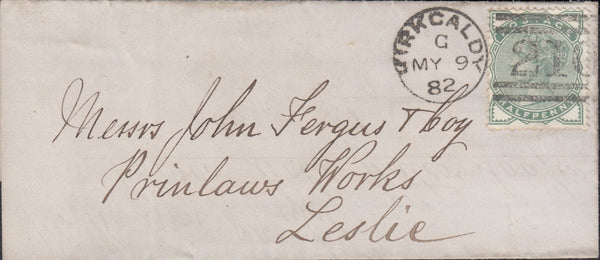 KIRKCALDY
G
MY 9
82
POSTAGE
211
HALFPENNY
Messrs John Fergus & Coy
Prinlaws Works
Leslie